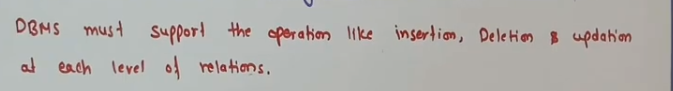 DBMS must support the operation like insertion, Deletion & updation
at each level of relations.